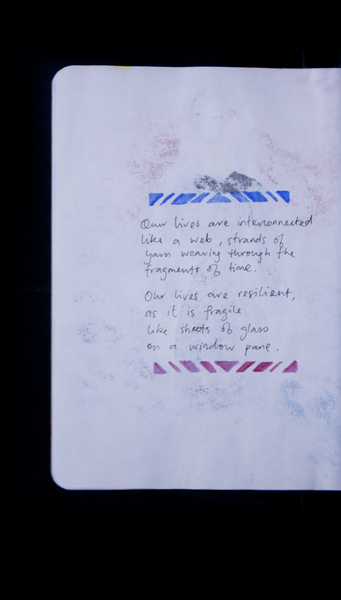 Our lives are interconnected
like a web, strands of
yarn weaving through the
fragments of time.
Our lives are resilient,
as it is fragile
like sheets of glass
on a window pane.